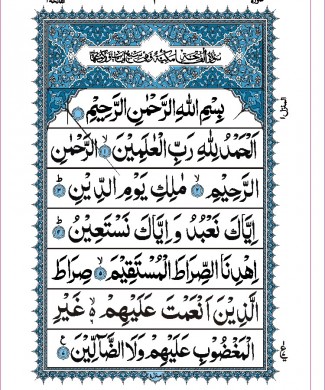 بِسْمِ اللهِ الرَّحْمٰنِ الرَّحِيْمِ
اَلْحَمْدُ لِلّٰهِ رَبِّ الْعٰلَمِيْنَ ۙ﴿۱﴾ الرَّحْمٰنِ
الرَّحِيْمِ ۙ﴿۲﴾ مٰلِكِ يَوْمِ الدِّيْنِ ؕ﴿۳﴾
اِيَّاكَ نَعْبُدُ وَ اِيَّاكَ نَسْتَعِيْنُ ؕ﴿۴﴾
اِهْدِنَا الصِّرَاطَ الْمُسْتَقِيْمَ ۙ﴿۵﴾ صِرَاطَ
الَّذِيْنَ اَنْعَمْتَ عَلَيْهِمْ ۙ۬ غَيْرِ
الْمَغْضُوْبِ عَلَيْهِمْ وَلَا الضَّآلِّيْنَ